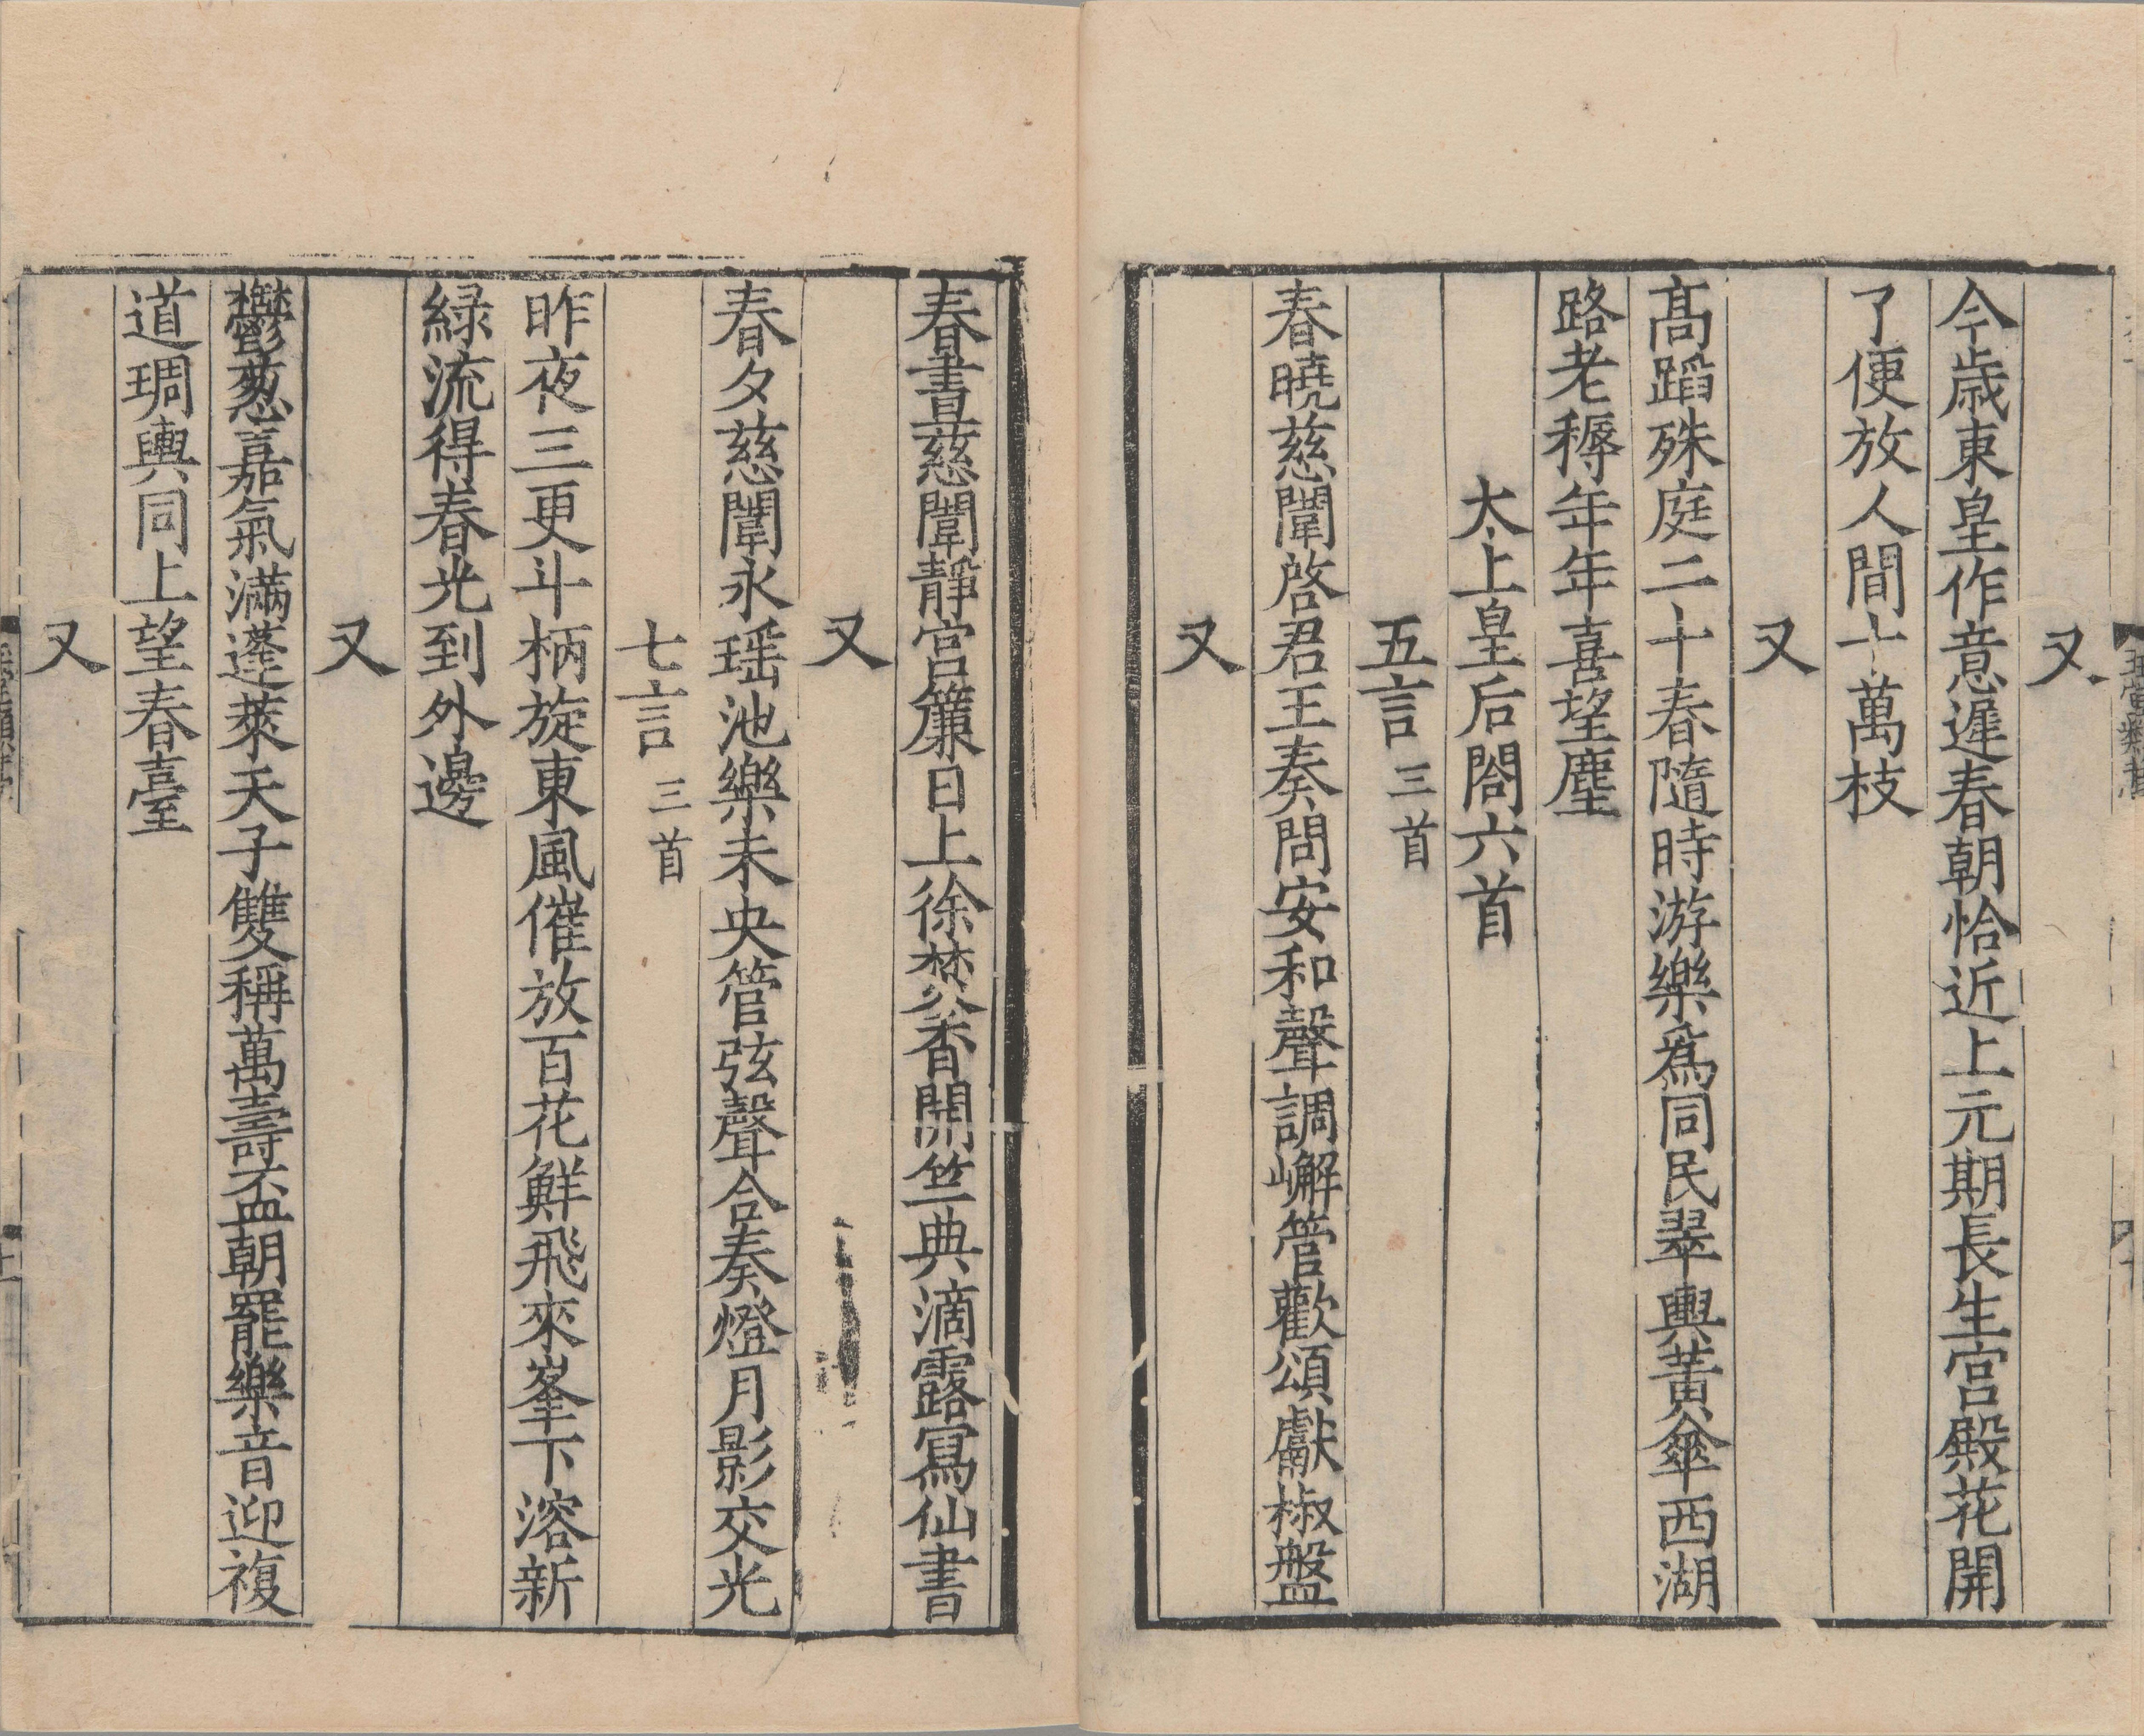 又
今歳東皇作意遲春朝恰近上元期長生宮殿花開
了便放人間十萬枝
又
髙蹈殊庭二十春隨時游樂爲同民翠輿黃傘西湖
路老穉年年喜望塵
太上皇后閤六首
五言三首
春曉慈闈啓君王奏問安和聲調嶰管歡頌獻椒盤
又
春晝慈闈靜宮簾日上徐焚香開竺典滴露寫仙書
又
春夕慈闈永瑶池樂未央管弦聲合奏燈月影交光
七言三首
昨夜三更斗柄旋東風催放百花鮮飛來峯下溶新
緑流得春光到外邊
又
鬱葱嘉氣滿蓬萊天子雙稱萬壽盃朝罷樂音迎複
道琱輿同上望春臺
又